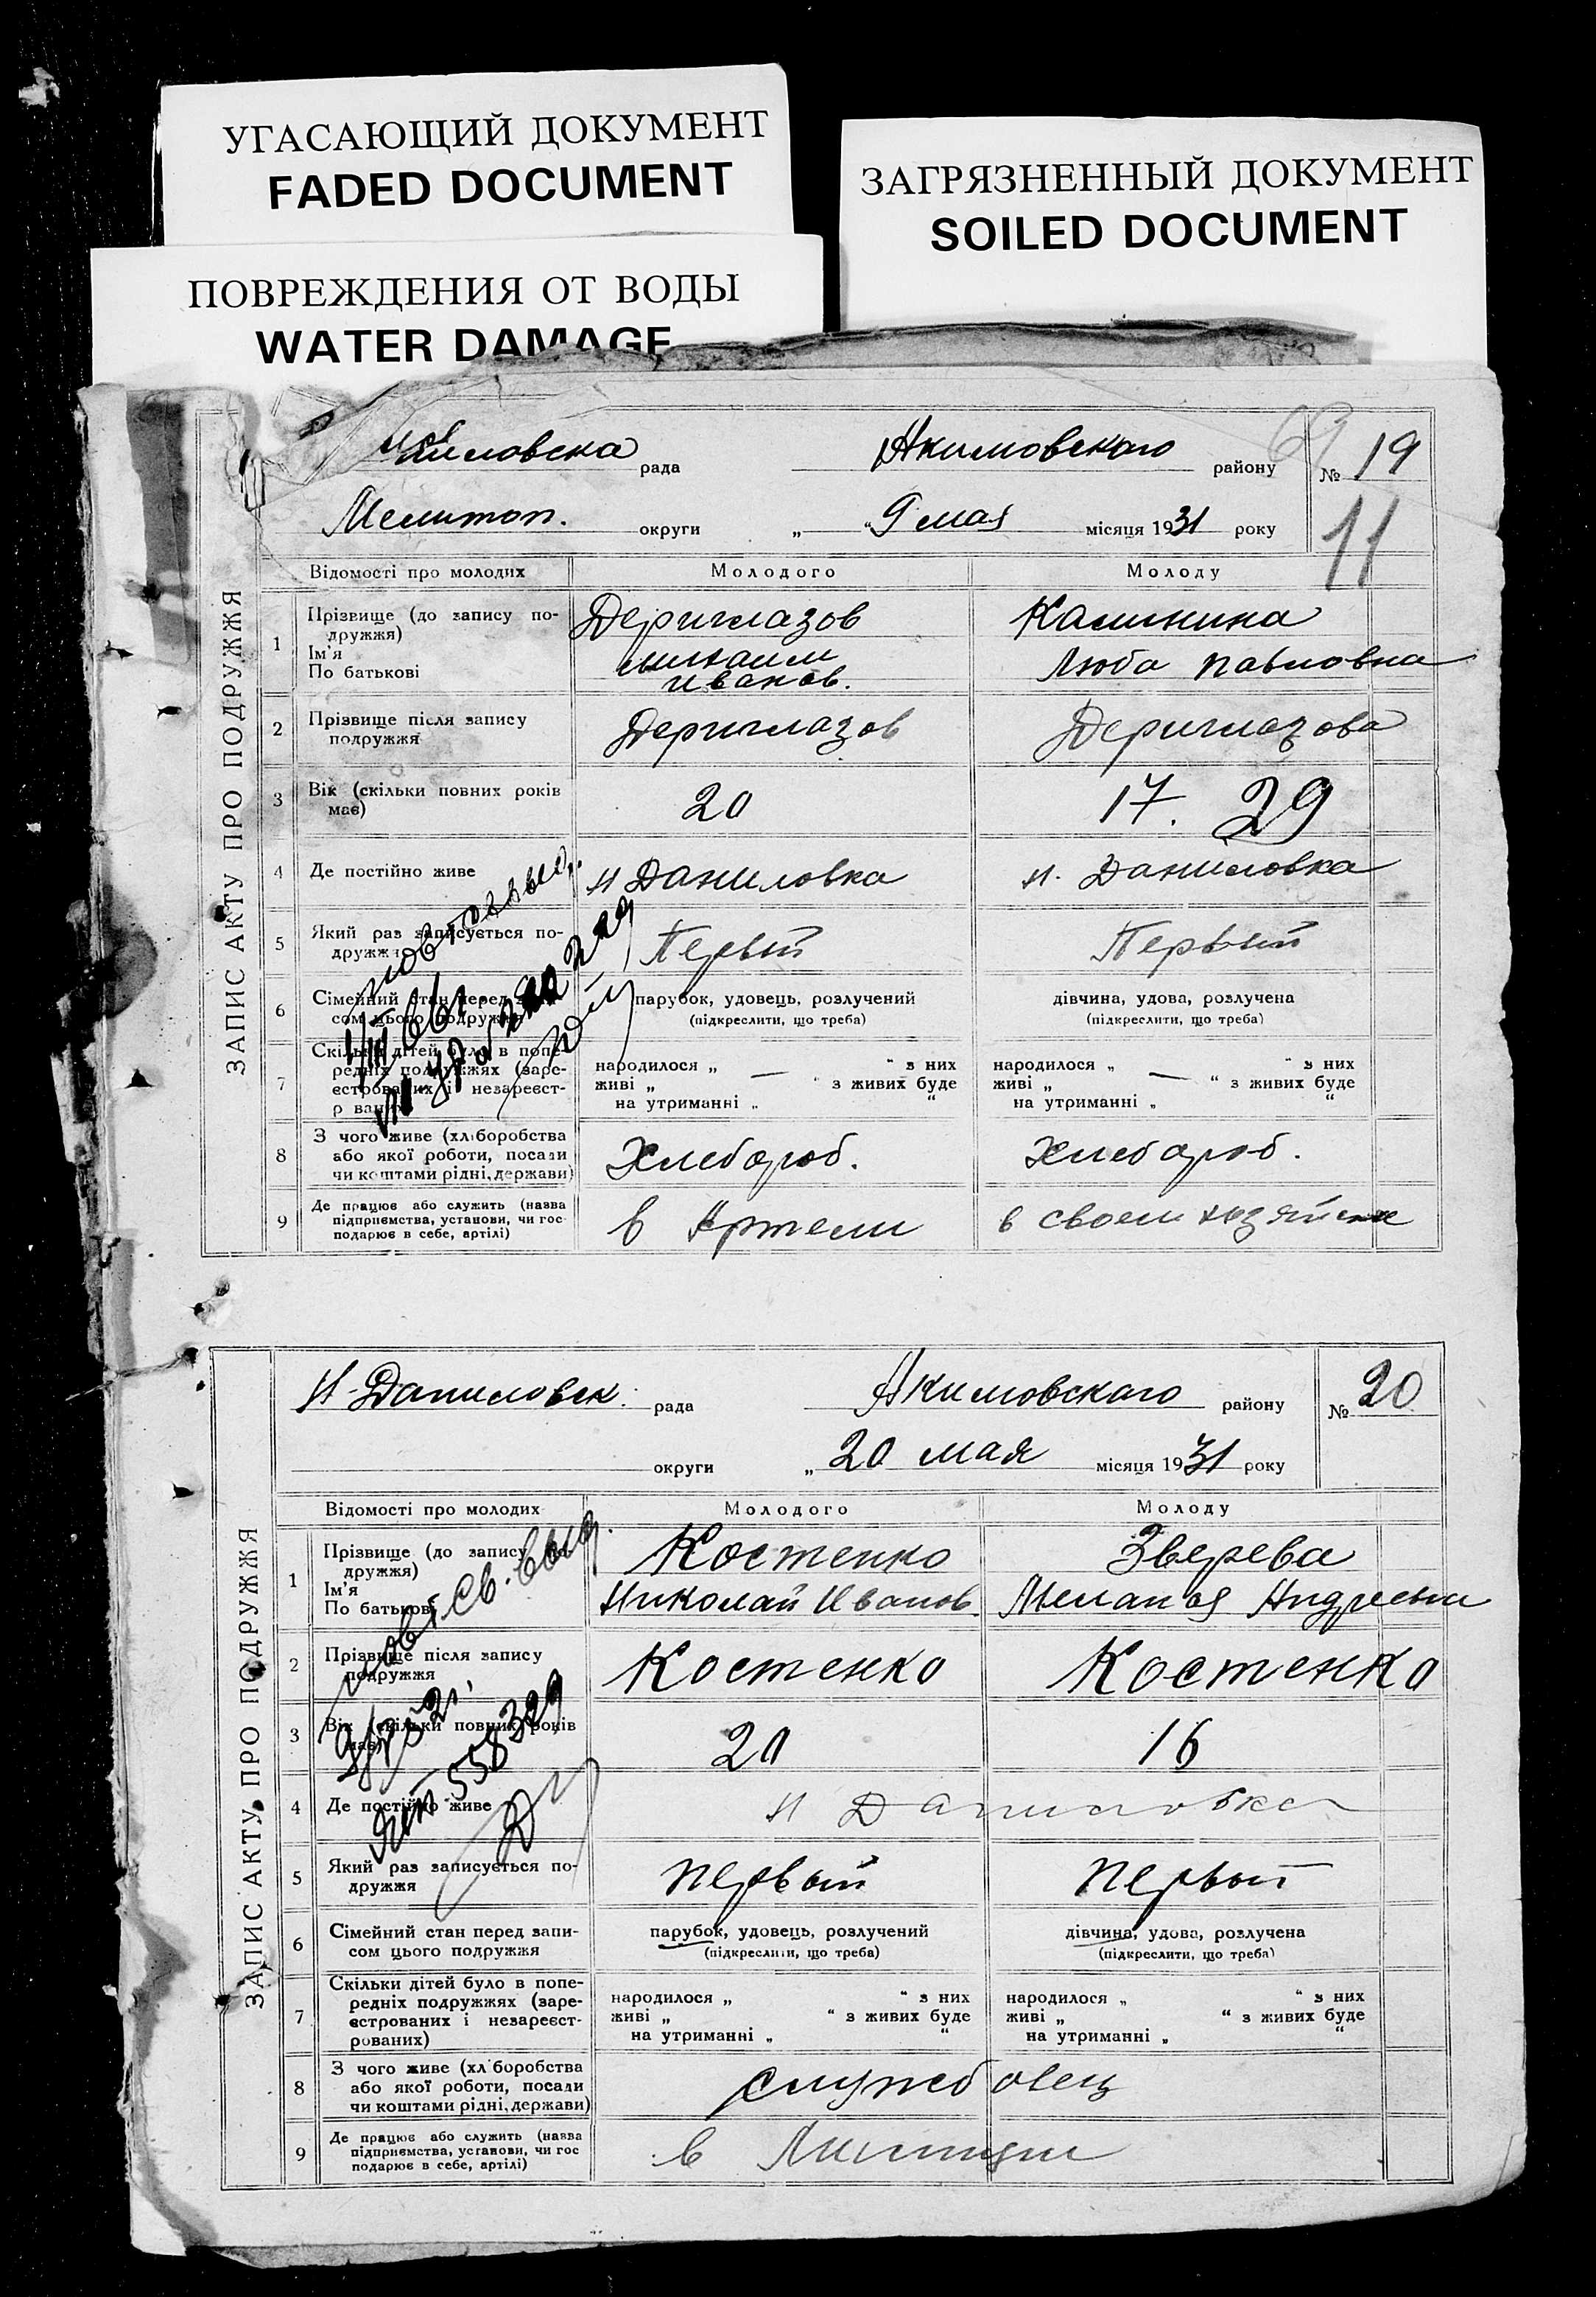 УГАСАЮЩИЙ ДОКУМЕНТ
FADED DOCUMENT
ЗАГРЯЗНЕННЫЙ ДОКУМЕНТ
SOILED DOCUMENT
ПОВРЕЖДЕНИЯ ОТ ВОДЫ
WATER DAMAGE
рада Акимовского району № 19
Мелитоп. округи „ “ 9 мая місяця 1931 року
11
ЗАПИС АКТУ ПРО ПОДРУЖЖЯ
Відомості про молодих Молодого Молоду
1 Прізвище (до запису по-
дружжя)
Ім'я
По батькові
Дериглазов
Михаил
Иванов.
Калинина
Люба Павловна
2 Прізвище після запису
подружжя
Дериглазов Дериглазова
3 Вік (скільки повних років
має)
20 17. 29
4 Де постійно живе Н Даниловка Н. Даниловка
5 Який раз записується по-
дружжя
Первый Первый
6 Сімейний стан перед запи-
сом цього подружжя
парубок, удовець, розлучений
(підкреслити, що треба)
дівчина, удова, розлучена
(підкреслити, що треба)
7 Скільки дітей було в попе-
редніх подружжях (заре-
єстрованих і незареєст-
рованих)
народилося „ “ з них
живі „ — “ з живих буде
на утриманні „ “
народилося „ “ з них
живі „ — “ з живих буде
на утриманні „ “
8 З чого живе (хліборобства
або якої роботи, посади
чи коштами рідні, держави)
Хлебороб. Хлебороб.
9 Де працює або служить (назва
підприємства, установи, чи гос-
подарює в себе, артілі)
в Артели в своем
Н-Даниловск. рада Акимовского району № 20
округи „ 20 мая місяця 1931 року
ЗАПИС АКТУ ПРО ПОДРУЖЖЯ
Відомості про молодих Молодого Молоду
1 Прізвище (до запису по-
дружжя)
Ім'я
По батькові
Костенко
Николай Иванов.
Зверева
Мелан'я
2 Прізвище після запису
подружжя
Костенко Костенко
3 Вік (скільки повних років
має)
20 16
4 Де постійно живе Н Даниловка
5 Який раз записується по-
дружжя
Первый Первый
6 Сімейний стан перед запи-
сом цього подружжя
парубок, удовець, розлучений
(підкреслити, що треба)
дівчина, удова, розлучена
(підкреслити, що треба)
7 Скільки дітей було в попе-
редніх подружжях (заре-
єстрованих і незареєст-
рованих)
народилося „ “ з них
живі „ “ з живих буде
на утриманні „ “
народилося „ “ з них
живі „ “ з живих буде
на утриманні „ “
8 З чого живе (хліборобства
або якої роботи, посади
чи коштами рідні, держави)
службовец
9 Де працює або служить (назва
підприємства, установи, чи гос
подарює в себе, артілі)
в Милиции